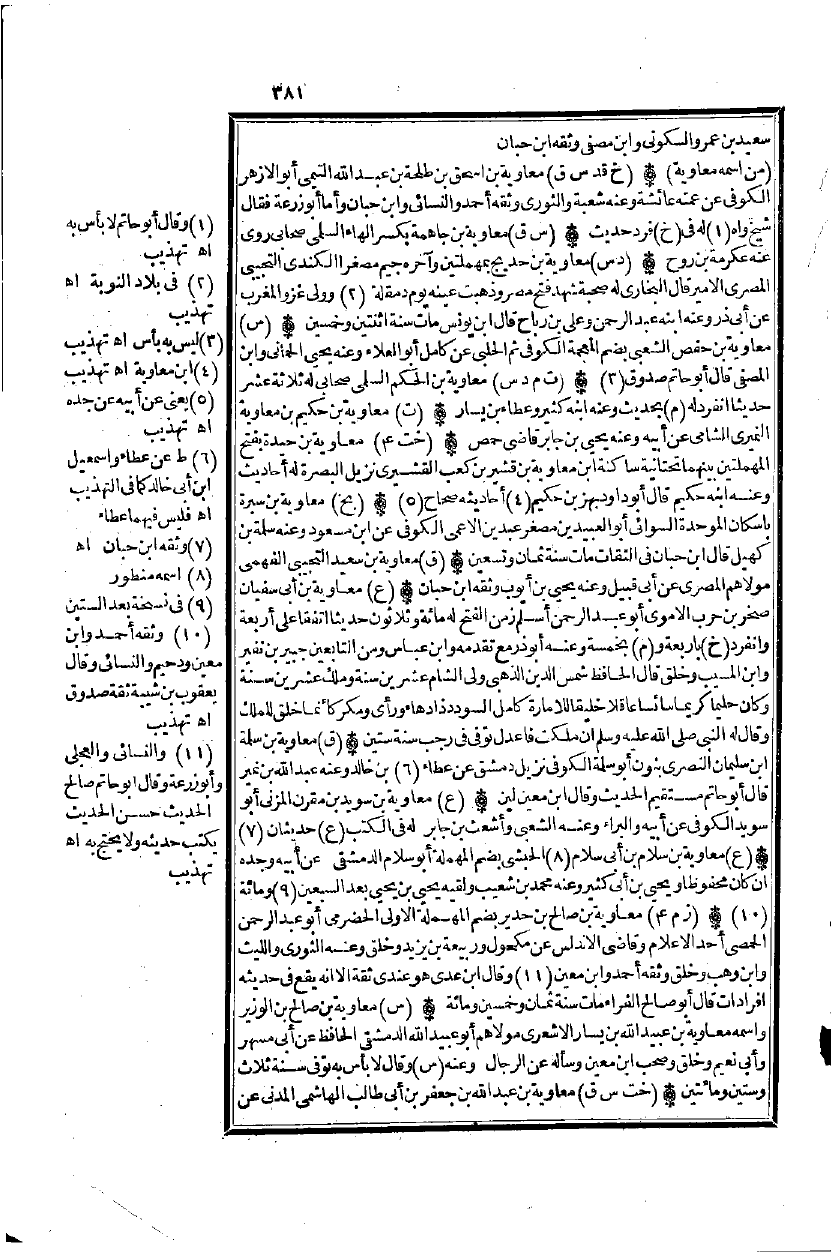 ٣٨١
سعيد بن عمرو السكونى وابن مصفى وثقه ابن حبان
(من اسمه معاوية) (خ قد س ق) معاوية بن اسحق بن طلحة بن عبد الله التيمى أبو الازهر
الكوفى عن عمته عائشة وعنه شعبة والثورى وثقه أحمد والنسائى وابن حبان وأما أبو زرعة فقال
شيخ واه (١) له فى (خ) فرد حديث (س ق) معاوية بن جاهمة بكسر الهاء السلمى صحابى روى
عنه عكرمة بن روح (د س) معاوية بن حديج بمهملتين وآخره جيم مصغرا الكندى التجيبى
المصرى الامير قال البخارى له صحبة شهد فتح مصر وذهبت عينه يوم دمقلة (٢) وولى غزو المغرب
عن أبى ذر وعنه ابنه عبد الرحمن وعلى بن رباح قال ابن يونس مات سنة اثنتين وخمسين (س)
معاوية بن حفص الشعبى بضم المعجمة الكوفى ثم الحلبى عن كامل أبو العلاء وعنه يحيى الحمانى وابن
المصفى قال أبو حاتم صدوق (٣) (ت م د س) معاوية بن الحكم السلمى صحابى له ثلاثة عشر
حديثا انفرد له (م) بحديث وعنه ابنه كثير وعطاء بن يسار (ت) معاوية بن حكيم بن معاوية
النميرى الشامى عن أبيه وعنه يحيى بن جابر قاضى حمص (خت ٤) معاوية بن حيدة بفتح
المهملتين بينهما تحتانية ساكنة ابن معاوية بن قشير بن كعب القشيرى نزيل البصرة له أحاديث
وعنه ابنه حكيم قال أبو داود بهز بن حكيم (٤) أحاديثه صحاح (٥) (بخ) معاوية بن سبرة
باسكان الموحدة السوائى أبو العبيدين مصغر عبدين الاعمى الكوفى عن ابن مسعود وعنه سلمة بن
كهيل قال ابن حبان فى الثقات مات سنة ثمان وتسعين (ق) معاوية بن سعيد التجيبى الفهمى
مولاهم المصرى عن أبى قبيل وعنه يحيى بن أيوب وثقه ابن حبان (ع) معاوية بن أبى سفيان
صخر بن حرب الاموى أبو عبد الرحمن أسلم زمن الفتح له مائة وثلاثون حديثا اتفقا على أربعة
وانفرد (خ) باربعة و(م) بخمسة وعنه أبو ذر مع تقدمه وابن عباس ومن التابعين جبير بن نفير
وابن المسيب وخلق قال الحافظ شمس الدين الذهبى ولى الشام عشرين سنة وملك عشرين سنة
وكان حليما كريما سائسا عاقلا خليقا للامارة كامل السودد ذا دهاء ورأى ومكر كأنما خلق للملك
وقال له النبى صلى الله عليه وسلم ان ملكت فاعدل توفى فى رجب سنة ستين (ق) معاوية بن سلمة
ابن سليمان النصرى بنون أبو سلمة الكوفى نزيل دمشق عن عطاء (٦) بن خالد وعنه عبد الله بن نمير
قال أبو حاتم مستقيم الحديث وقال ابن معين لين (ع) معاوية بن سويد بن مقرن المزنى أبو
سويد الكوفى عن أبيه والبراء وعنه الشعبى وأشعث بن جابر له فى الكتب (ع) حديثان (٧)
(ع) معاوية بن سلام بن أبى سلام (٨) الحبشى بضم المهملة أبو سلام الدمشقى عن أبيه وجده
ان كان محفوظا ويحيى بن أبى كثير وعنه محمد بن شعيب ولقيه يحيى بن يحيى بعد السبعين (٩) ومائة
(١٠) (ز م ٤) معاوية بن صالح بن حدير بضم المهملة الاولى الحضرمى أبو عبد الرحمن
الحمصى أحد الاعلام وقاضى الاندلس عن مكحول وربيعة بن يزيد وخلق وعنه الثورى والليث
وابن وهب وخلق وثقه أحمد وابن معين (١١) وقال ابن عدى هو عندى ثقة الا انه يقع فى حديثه
افرادات قال أبو صالح الفراء مات سنة ثمان وخمسين ومائة (س) معاوية بن صالح بن الوزير
واسمه معاوية بن عبيد الله بن يسار الاشعرى مولاهم أبو عبيد الله الدمشقى الحافظ عن أبى مسهر
وأبى نعيم وخلق وصحب ابن معين وسأله عن الرجال وعنه (س) وقال لا بأس به توفى سنة ثلاث
وستين ومائتين (خت س ق) معاوية بن عبد الله بن جعفر بن أبى طالب الهاشمى المدنى عن
(١) وقال أبو حاتم لا بأس به
اه تهذيب
(٢) فى بلاد النوبة اه
تهذيب
(٣) ليس به بأس اه تهذيب
(٤) ابن معاوية اه تهذيب
(٥) يعنى عن أبيه عن جده
اه تهذيب
(٦) ط عن عطاء واسمعيل
ابن أبى خالد كما فى التهذيب
اه فليس فيهما عطاء
(٧) وثقه ابن حبان اه
(٨) اسمه ممطور
(٩) فى نسخة بعد الستين
(١٠) وثقه أحمد وابن
معين ودحيم والنسائى وقال
يعقوب بن شيبة ثقة صدوق
اه تهذيب
(١١) والنسائى والعجلى
وأبو زرعة وقال ابو حاتم صالح
الحديث حسن الحديث
يكتب حديثه ولا يحتج به اه
تهذيب